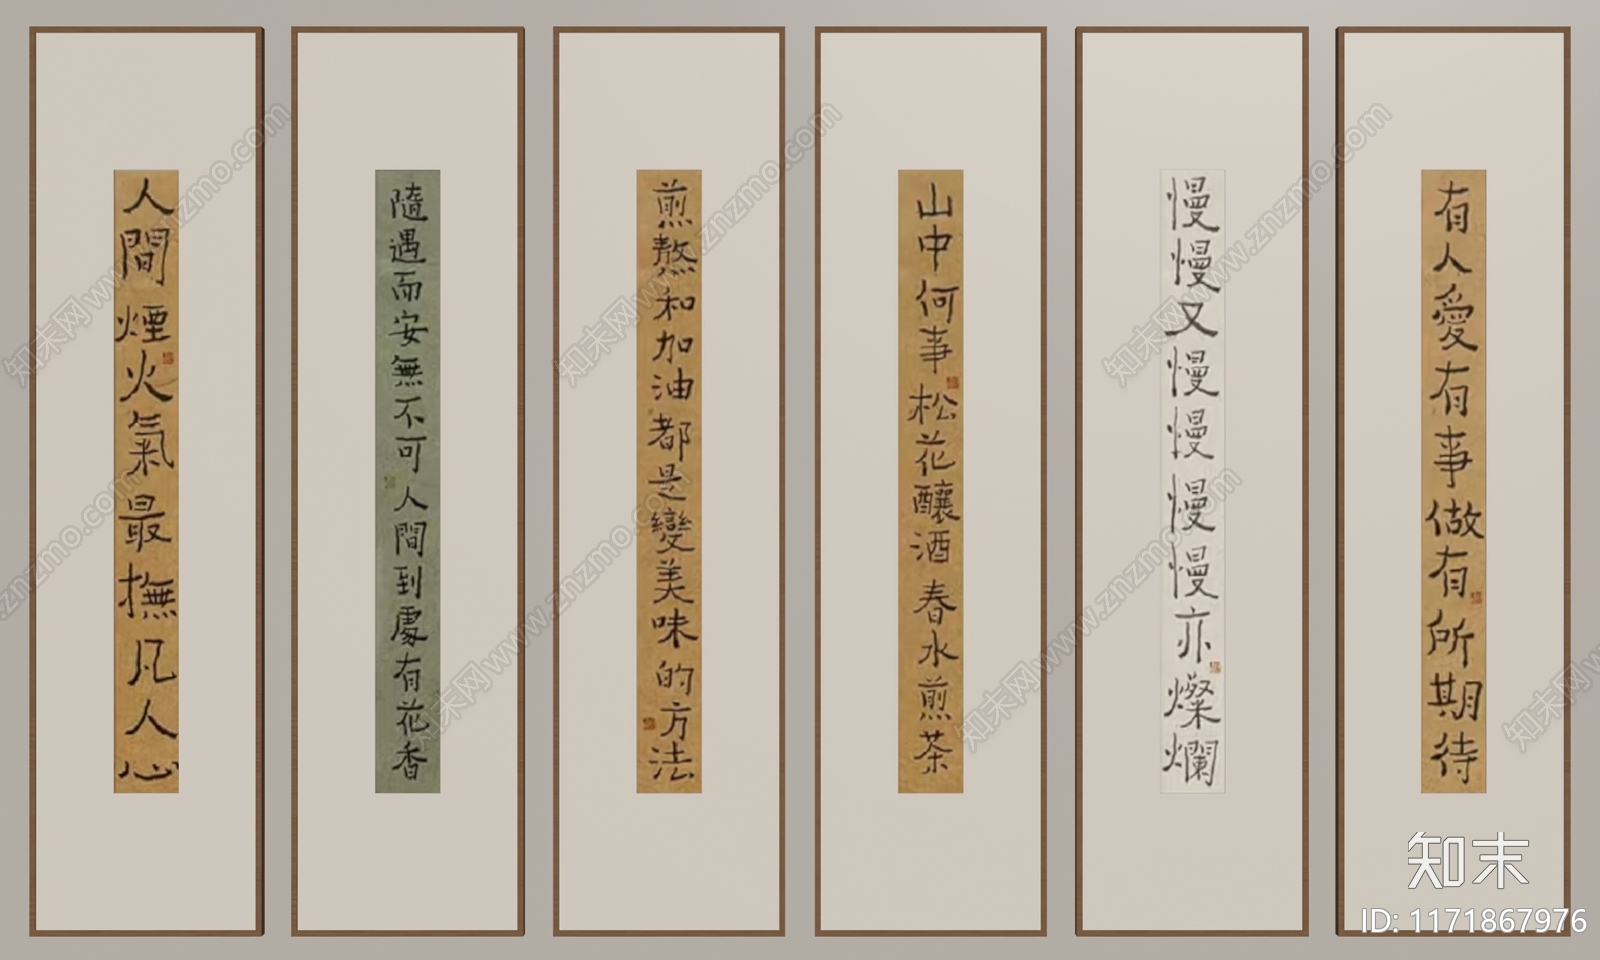 人間煙火氣最撫凡人心
隨遇而安無不可人間到處有花香
煎熬和加油都是變美味的方法
山中何事松花釀酒春水煎茶
慢慢又慢慢慢慢亦燦爛
有人愛有事做有所期待
知末
ID: 1171867976
知末网www.znzmo.com